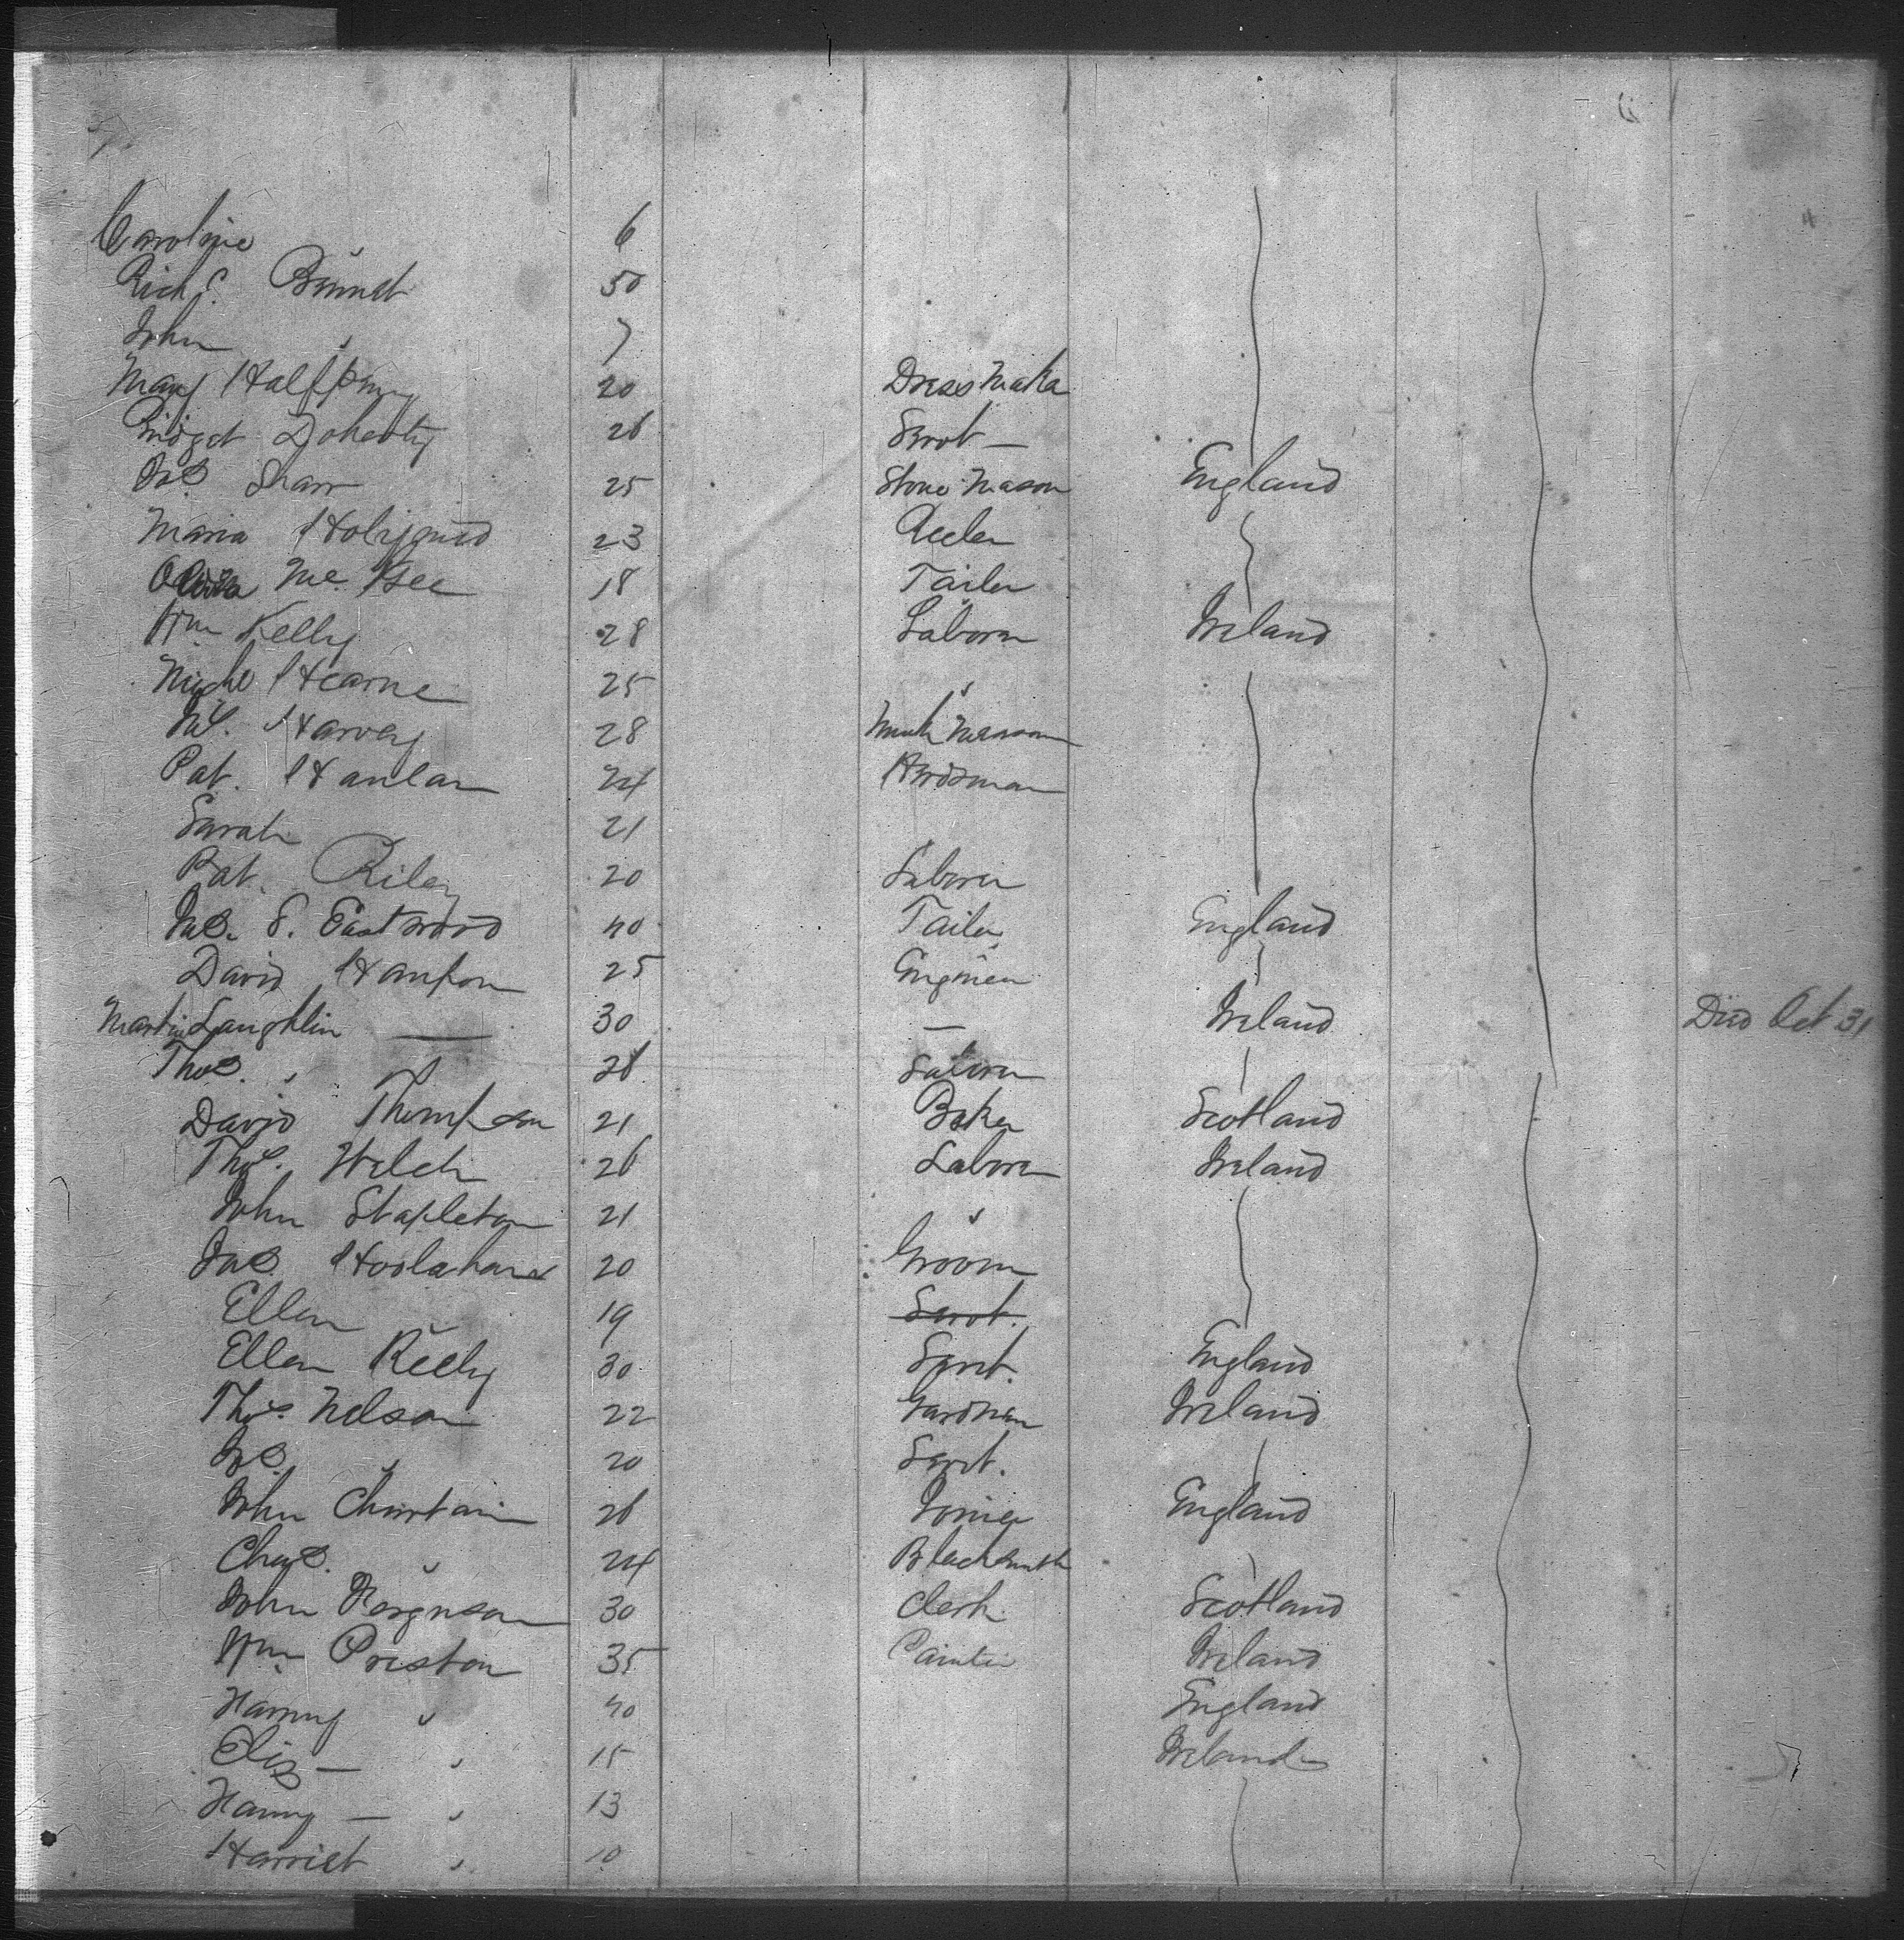 Caroline " 6
Rich d. Bennet 50
John " 7
Mary Halfpenny 20 Dress Maker
Bridget Doherty 26 Servt —
Jas Shaw 25 Stone Mason England
Maria 23
Mc Kee 18 Tailer
Wm Kelly 28 Laborer Ireland
Michl Hearne 25 "
Jas. Harvey 28
Pat. Hanlan 24 Herdsman
Sarah 21
Pat. Riley 20 Laborer
Jas. S. Eastwood 40 Tailer England
David Hampson 25 Engineer
Martin Laughlin — 30 — Ireland Died Oct 31
Thos. " 26 Laborer
David Thompson 21 Baker Scotland
Thos. Welch 26 Laborer Ireland
John Stapleton 21 "
Jas. Hoolahan 20 Groom
Ellen " 19 Servt.
Ellen Reely 30 Servt. England
Thos. Nelson 22 Gardner Ireland
Jas. " 20 Servt.
John 26 Joiner England
Chas. " 24 Blacksmith
John Ferguson 30 Clerk Scotland
Wm Preston 35 Painter Ireland
" 40 England
Eliz — " 15 Ireland
— " 13
Harriet " 10